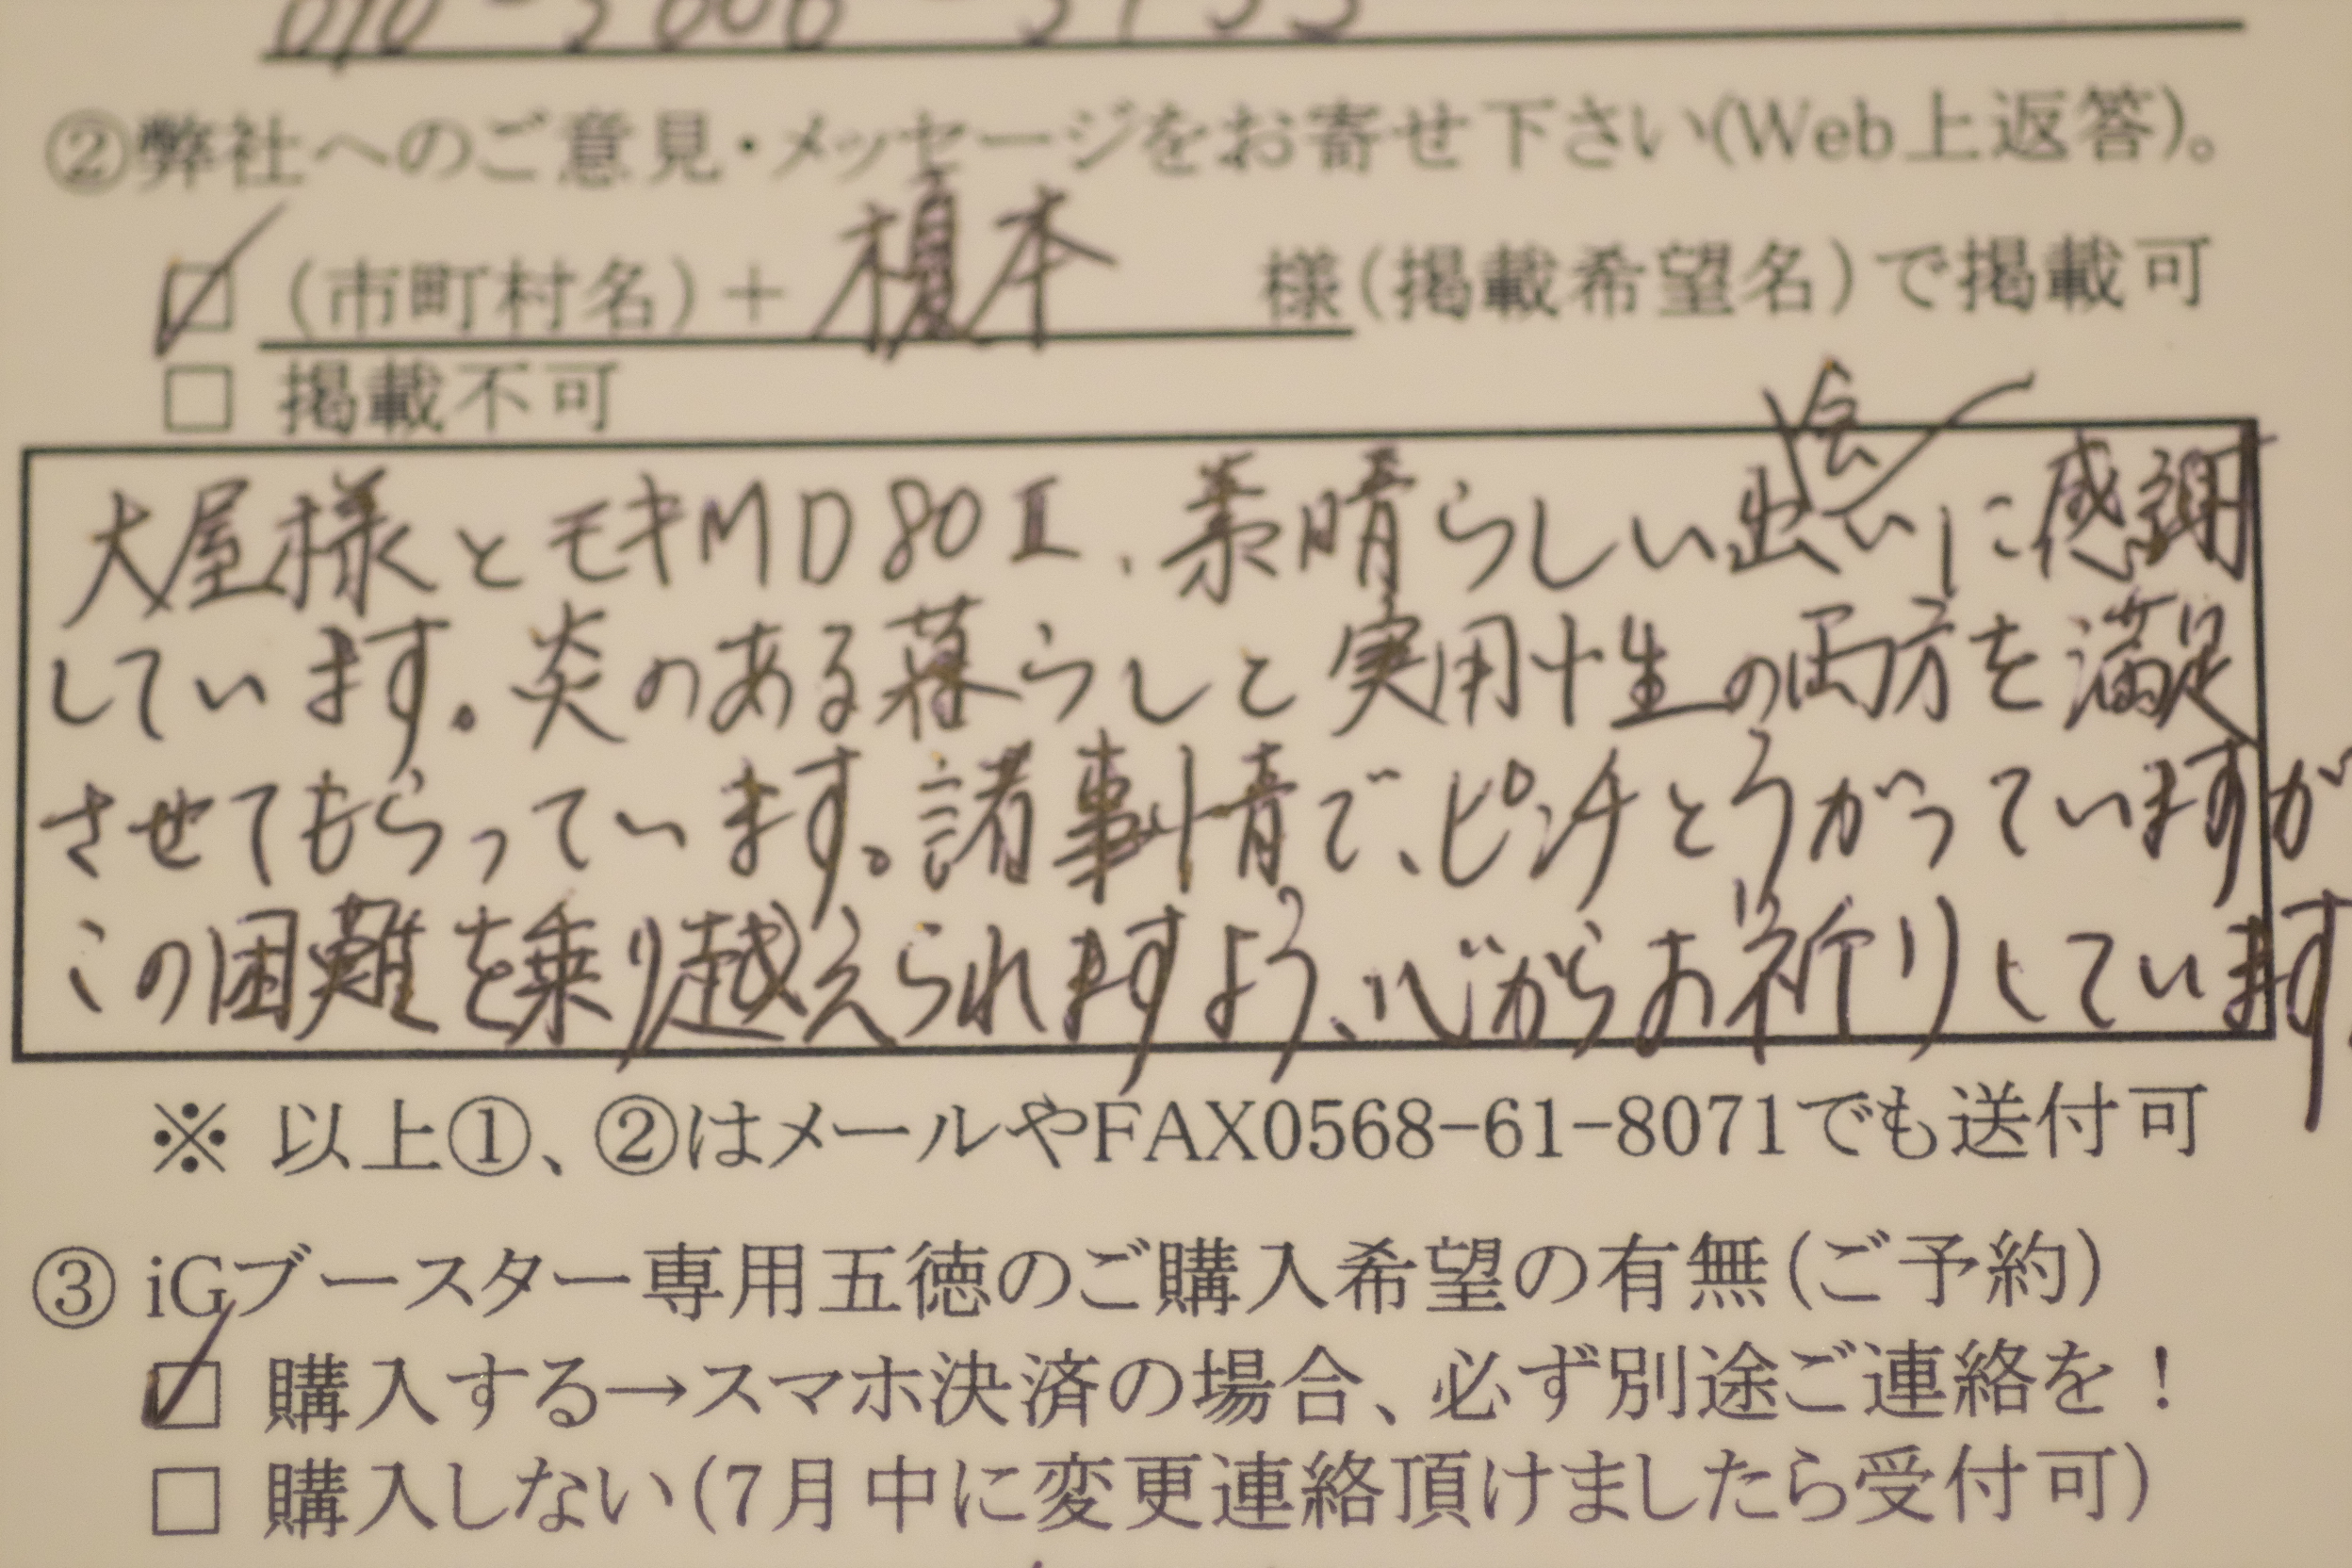 ②弊社へのご意見・メッセージをお寄せ下さい(Web上返答)。
☑ (市町村名)+ 榎本 様(掲載希望名)で掲載可
□ 掲載不可
大屋様とモキMD80Ⅱ、素晴らしい出会いに感謝
しています。炎のある暮らしと実用性の両方を満足
させてもらっています。諸事情で、ピンチとうかがっていますが
この困難を乗り越えられますよう、心からお祈りしています
※ 以上①、②はメールやFAX0568-61-8071でも送付可
③ iGブースター専用五徳のご購入希望の有無(ご予約)
☑ 購入する→スマホ決済の場合、必ず別途ご連絡を！
□ 購入しない(7月中に変更連絡頂けましたら受付可)